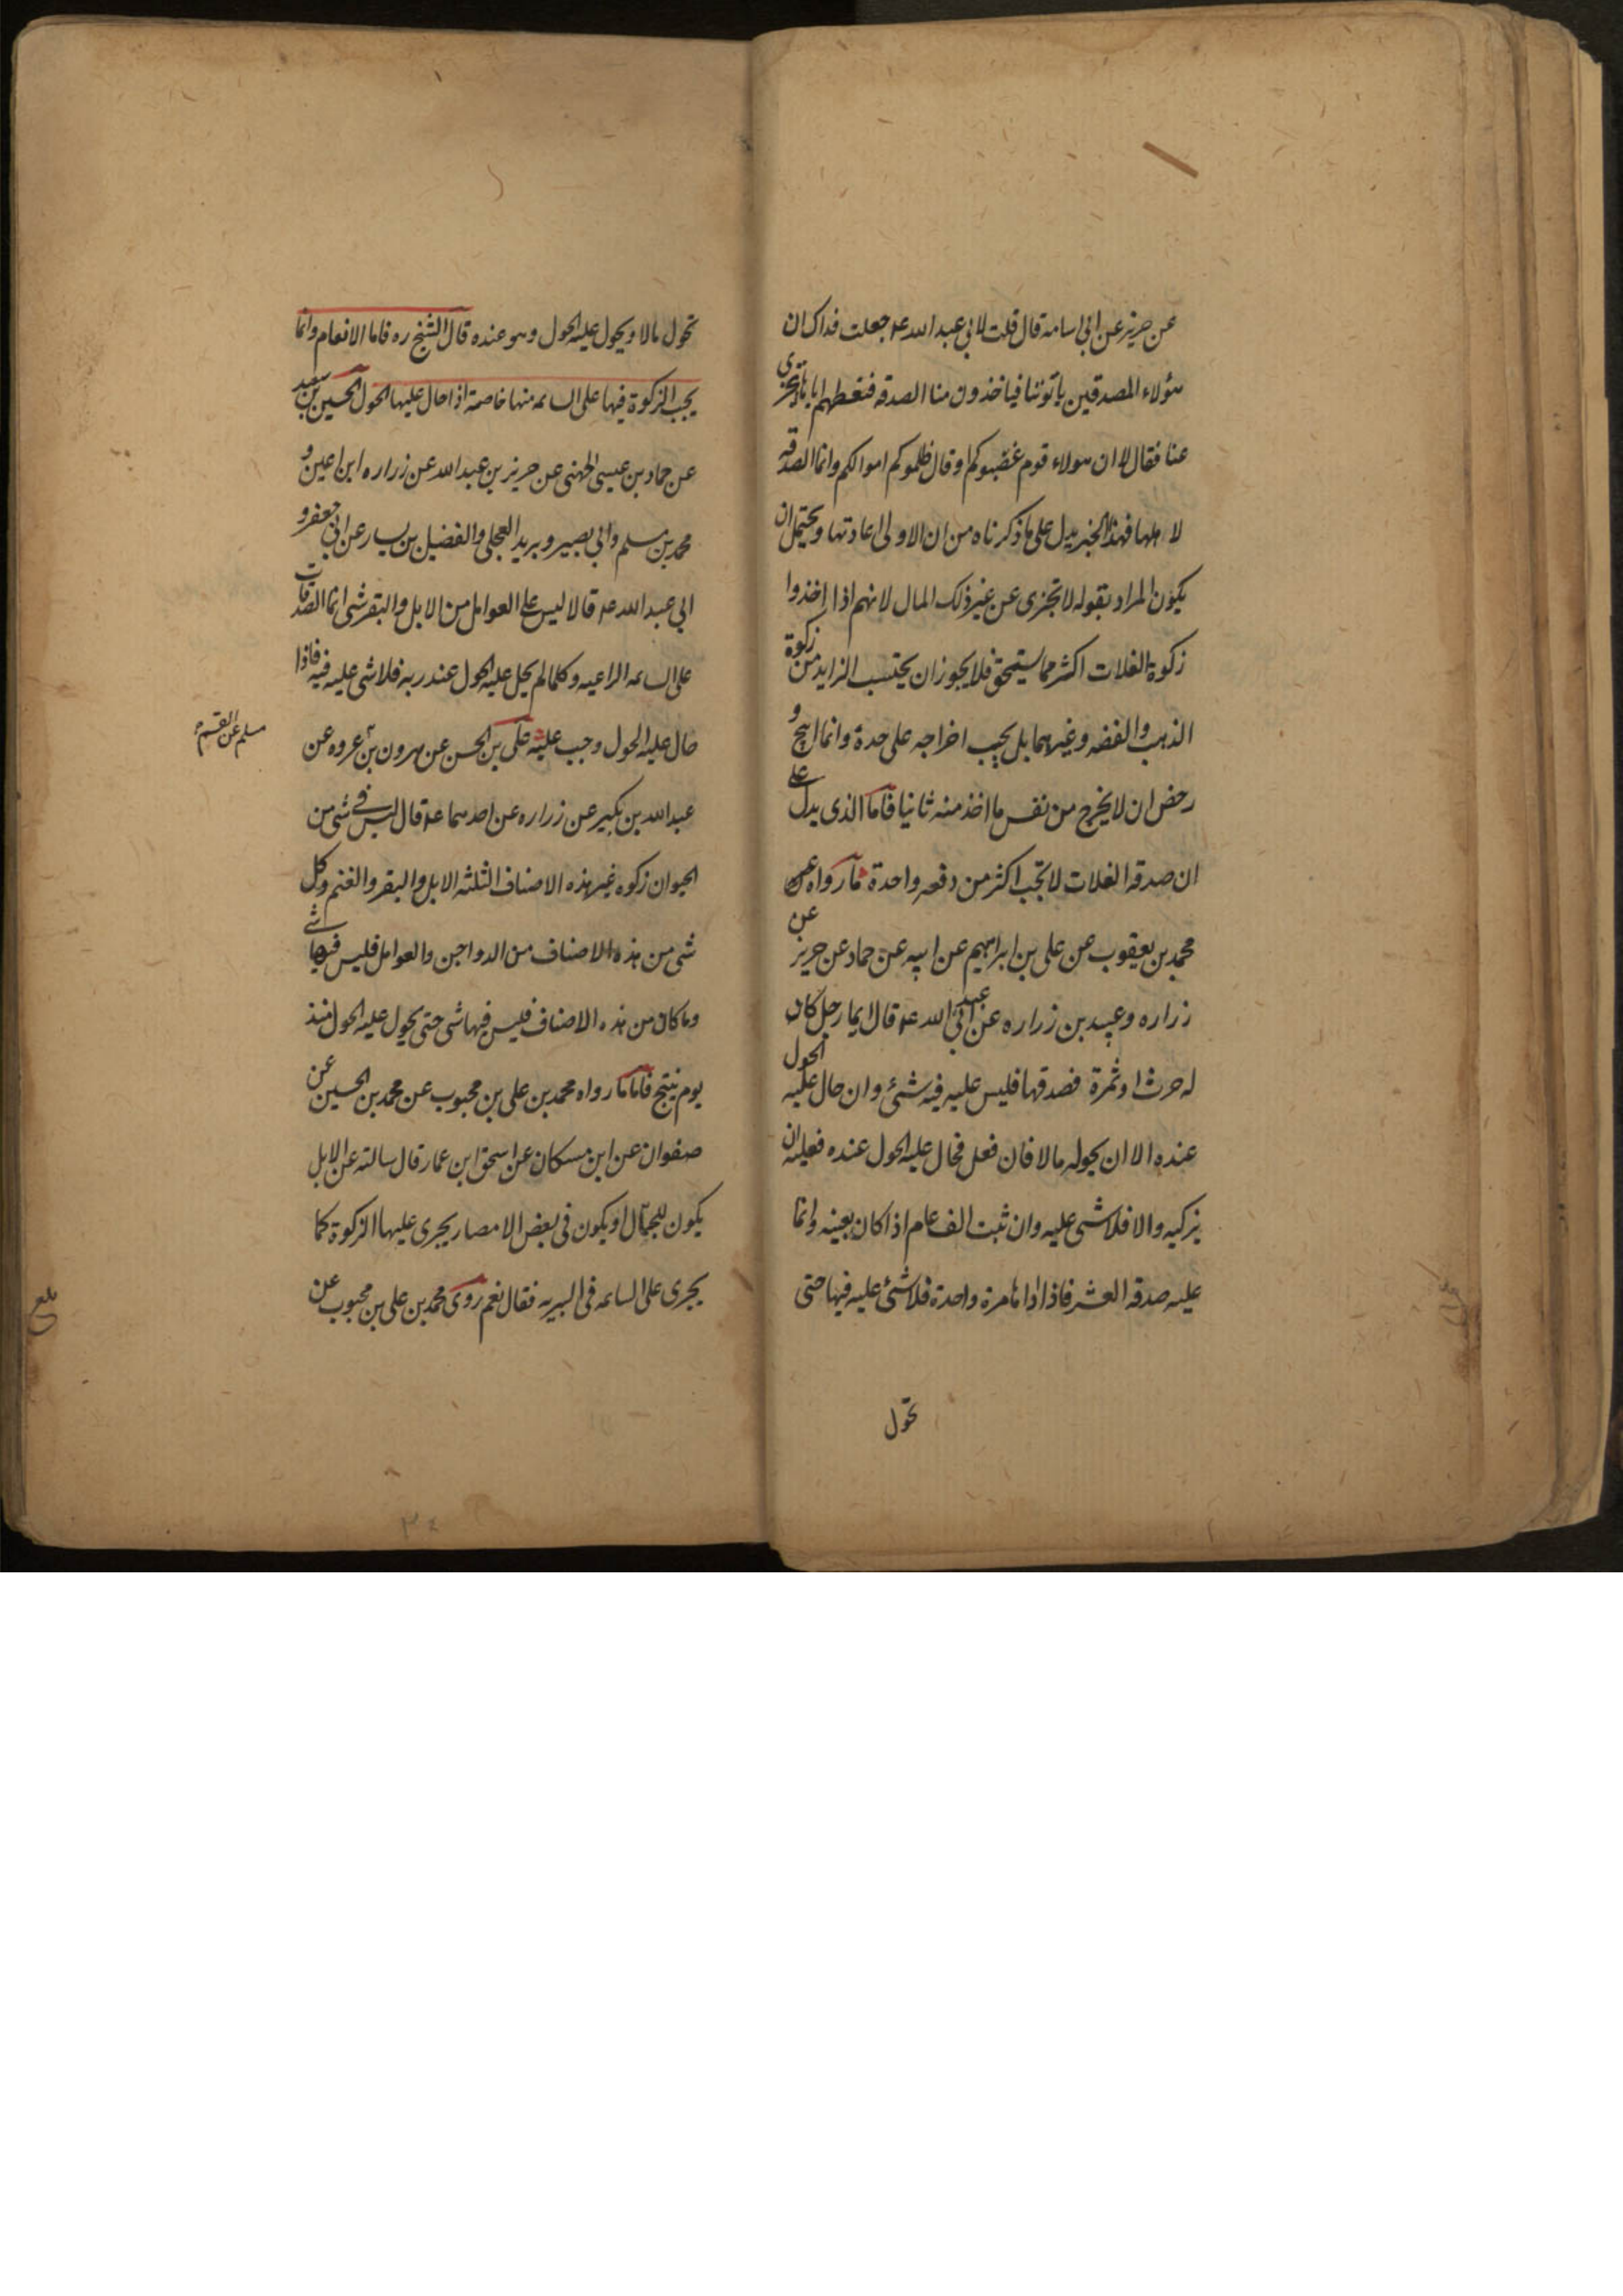 عن حريز عن ابى اسامة قال قلت لابى عبد الله ع جعلت فداك ان
هؤلاء المصدقين ياتوننا فياخذون منا الصدقه فنعطيهم اياها اتجزى
عنا فقال لا ان هولاء قوم غصبوكم او قال ظلموكم اموالكم وانما الصدقه
لاهلها فهذا الخبر يدل على ما ذكرناه من ان الاولى اعادتها ويحتمل ان
يكون المراد بقوله لا تجزى عن غير ذلك المال لانهم اذا اخذوا
زكوة الغلات اكثر مما يستحق فلا يجوز ان يحتسب الزايد من زكوة
الذهب والفضه وغيرهما بل يجب اخراجه على حدة وانما ابيح و
رخص ان لا يخرج من نفس ما اخذ منه ثانيا فاما الذى يدل على
ان صدقه الغلات لا تجب اكثر من دفعه واحدة مارواه
محمد بن يعقوب عن على بن ابراهيم عن ابيه عن حماد عن حريز عن
زراره وعبيد بن زراره عن ابى عبد الله ع قال ايما رجل كان
له حرث او ثمرة فصدقها فليس عليه فيه شئ وان حال عليه الحول
عنده الا ان يحوله مالا فان فعل فحال عليه الحول عنده فعليه ان
يزكيه والا فلا شى عليه وان ثبت الف عام اذا كان بعينه وانما
عليه صدقه العشر فاذا اداها مرة واحدة فلا شئ عليه فيها حتى
تحول
تحول مالا ويحول عليه الحول وهو عنده قال الشيخ ره فاما الانعام وانما
يجب الزكوة فيها على السائمه منها خاصة اذا حال عليها الحول الحسين بن سعيد
عن حماد بن عيسى الجهنى عن حريز بن عبد الله عن زراره ابن اعين و
محمد بن مسلم وابى بصير وبريد العجلى والفضيل بن يسار عن ابى جعفر و
ابى عبد الله ع قالا ليس على العوامل من الابل والبقر شى انما الصدقات
على السائمه الراعيه وكلما لم يحل عليه الحول عند ربه فلا شى عليه فيه فاذا
حال عليه الحول وجب عليه على بن الحسن عن هرون بن عروه عن
مسلم عن القسم
عبد الله بن بكير عن زراره عن احدهما ع قال ليس فى شى من
الحيوان زكوه غير هذه الاصناف الثلثه الابل والبقر والغنم وكل
شى من هذه الاصناف من الدواجن والعوامل فليس فيها شى
وما كان من هذه الاصناف فليس فيها شى حتى يحول عليه الحول منذ
يوم ينتج فاما مارواه محمد بن على بن محبوب عن محمد بن الحسين عن
صفوان عن ابن مسكان عن اسحق ابن عمار قال سالته عن الابل
يكون للجمال او يكون فى بعض الامصار يجرى عليها الزكوة كما
يجرى على السائمه فى البريه فقال نعم روى محمد بن على بن محبوب عن
بلغ
٣٤